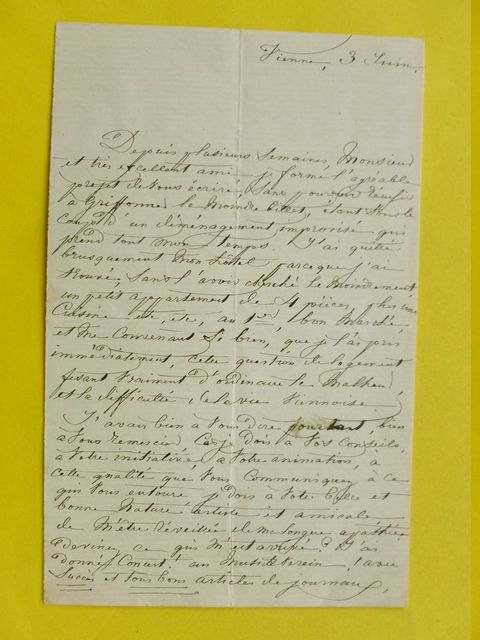 Vienne, 3 Juin.
Depuis plusieurs semaines, Monsieur
et très excellent ami, je forme l'agréable
projet de vous écrire, sans pouvoir réussir
à griffonner le moindre billet, étant sous le
coup d'un déménagement improvisé qui
prend tout mon temps. J'ai quitté
brusquement mon hôtel parce que j'ai
trouvé, sans l'avoir cherché le moindrement,
un petit appartement de 4 pièces, plus une
cuisine etc, etc, au 1er, bon marché,
et me convenant si bien, que je l'ai pris
immédiatement, cette question de logement
faisant vraiment d'ordinaire le malheur
et la difficulté de la vie viennoise.
J'avais bien à vous dire pourtant, bien
à vous remercier car je dois à vos conseils,
à votre initiative, à votre animation, à
cette qualité que vous communiquez à ce
qui vous entoure, je dois à votre et
bonne nature artiste et amicale
de m'être réveillée de ma longue apathie.
Devinez ce qui m'est arrivé? J'ai
donné Concert! au Musikverein! avec
succès et tous bons articles de journaux,